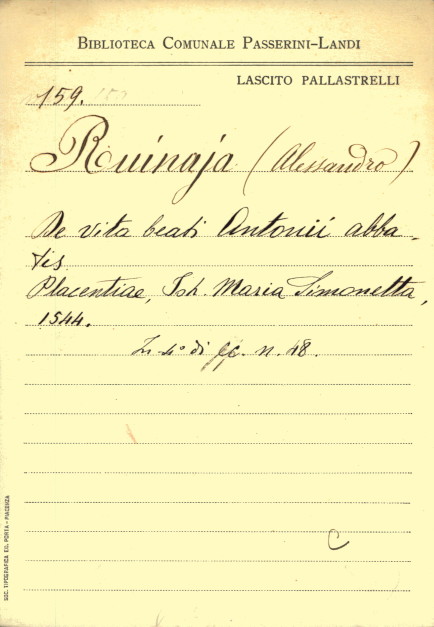 BIBLIOTECA COMUNALE PASSERINI-LANDI
LASCITO PALLASTRELLI
159.
Ruinaja (Alessandro)
De vita beati Antonii abba-
tis
Placentiae, Joh. Maria Simonetta,
1544.
In-4° di cc. n. 48.
C
SOC. TIPOGRAFICA ED. PORTA - PIACENZA